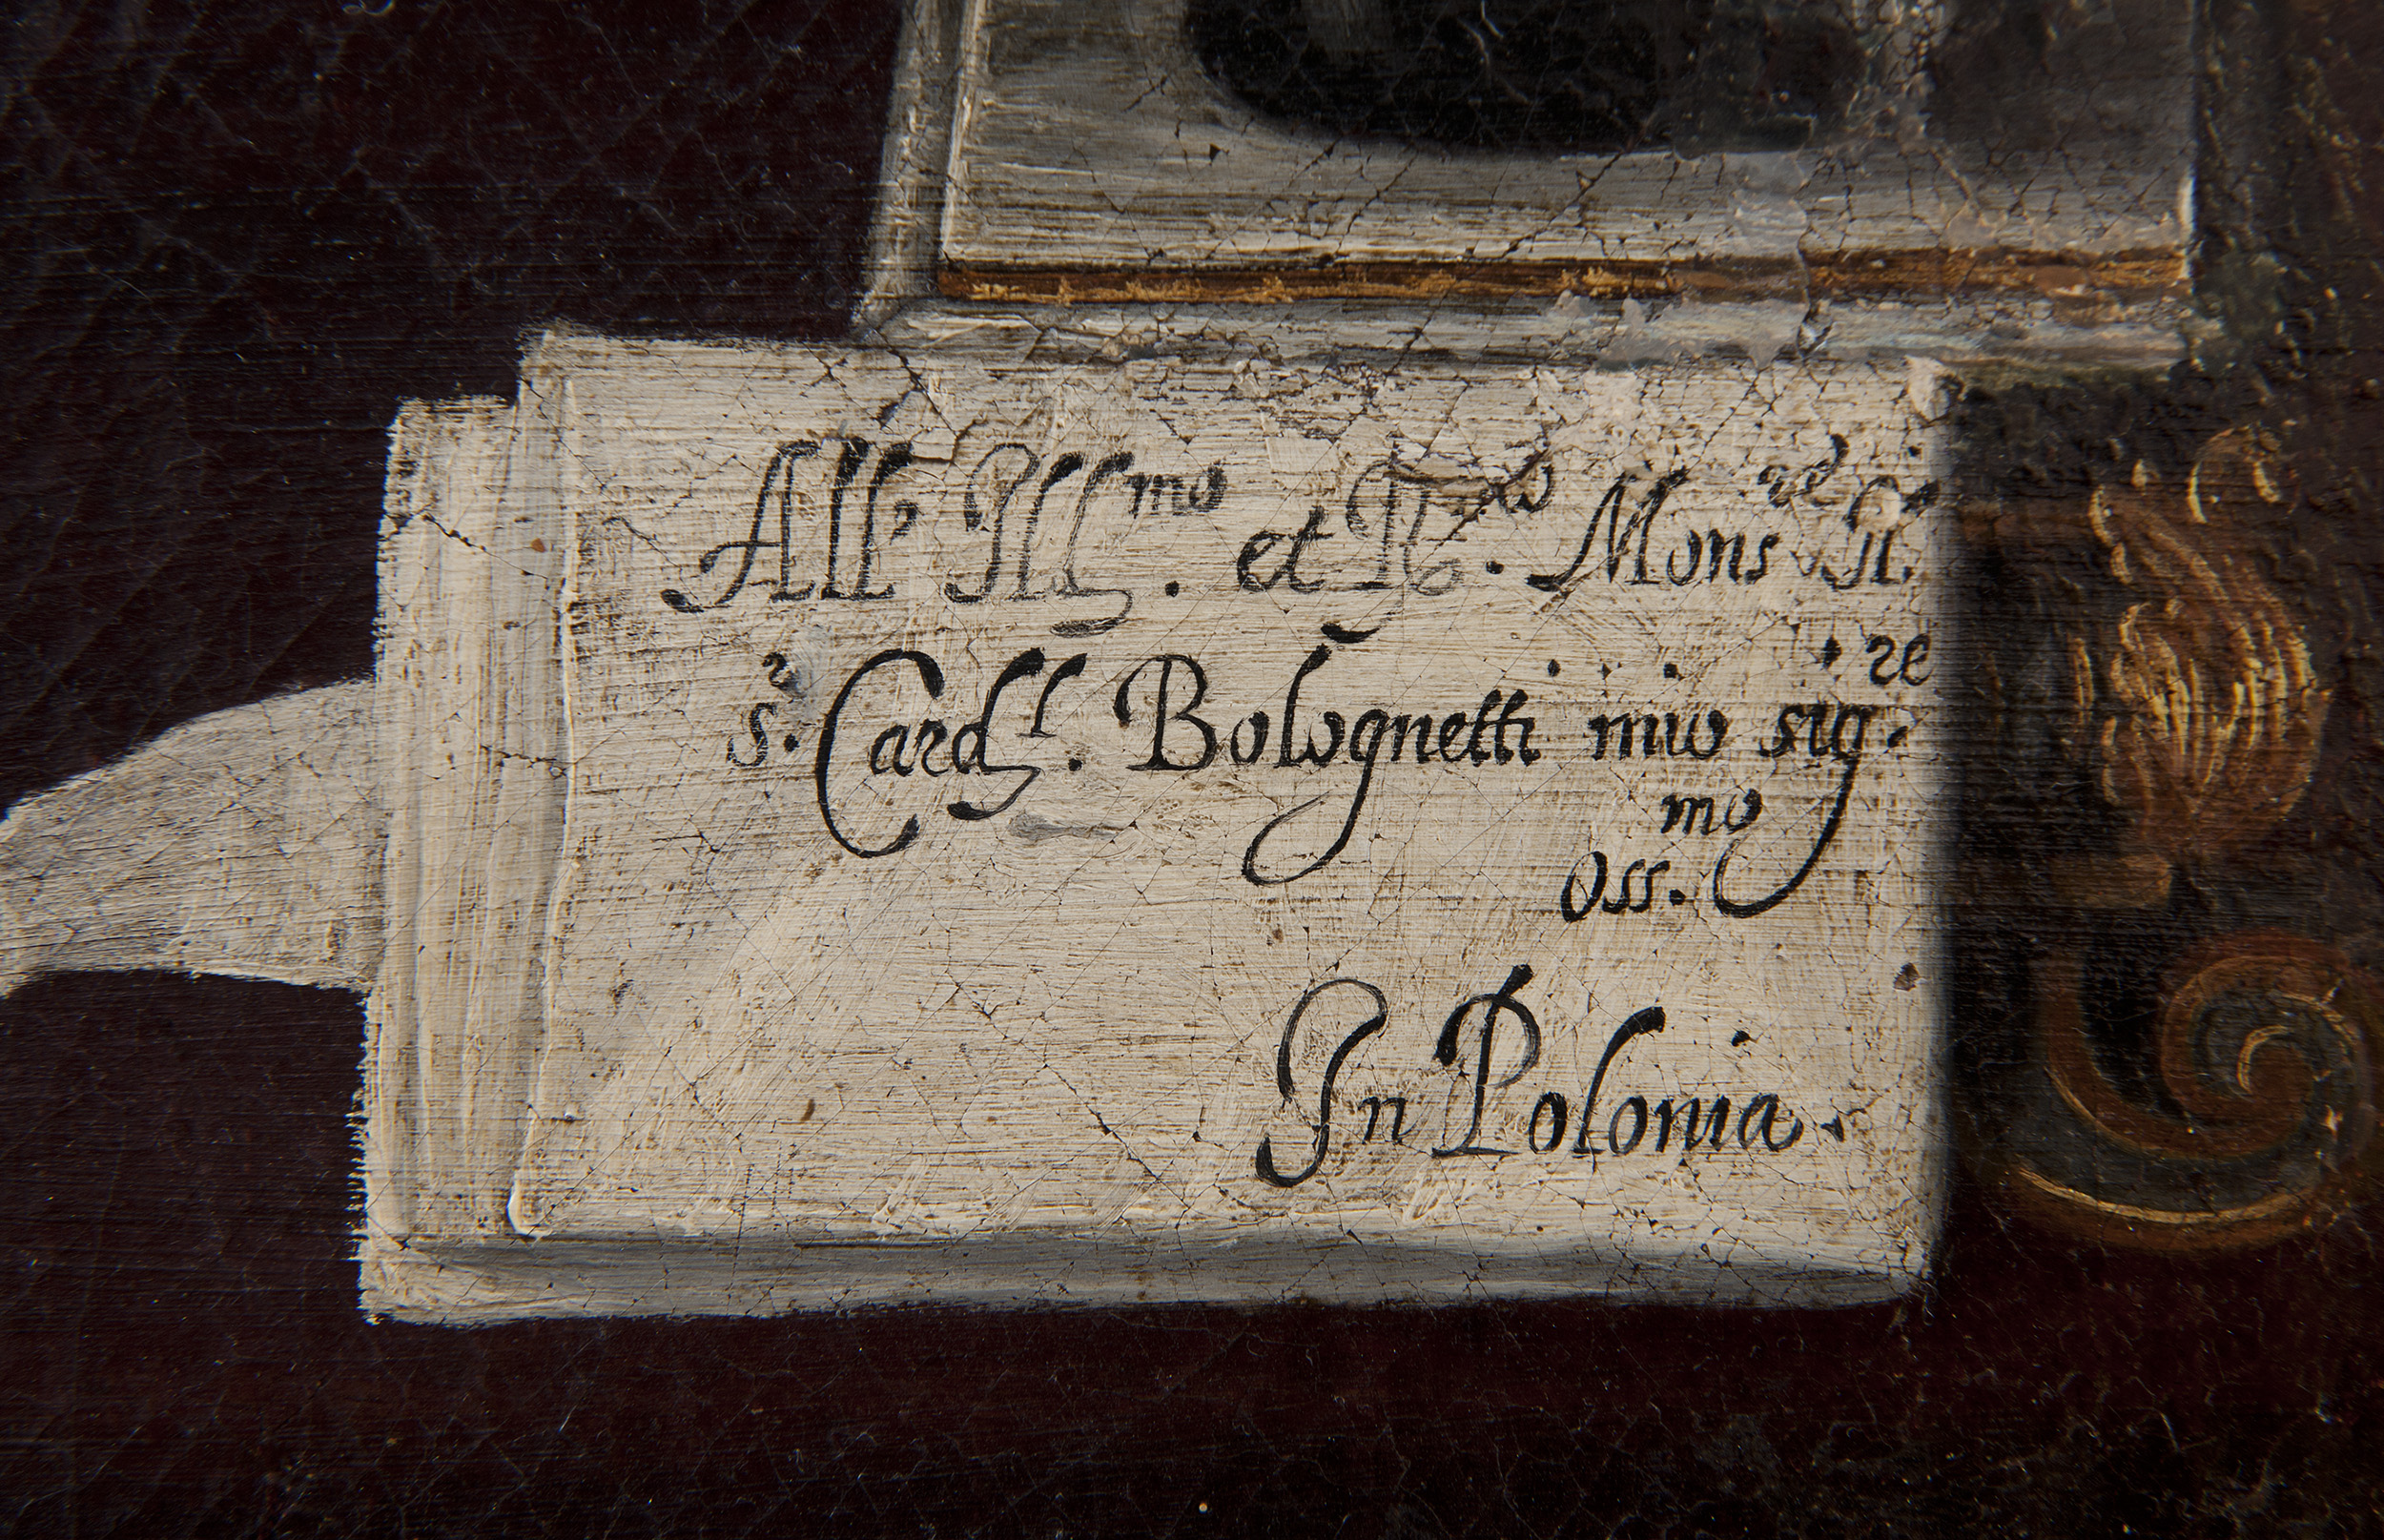 All' Ill.mo et R.mo Mons.re Il.
s.r Card.l Bolognetti mio sig.re
oss.mo
In Polonia.